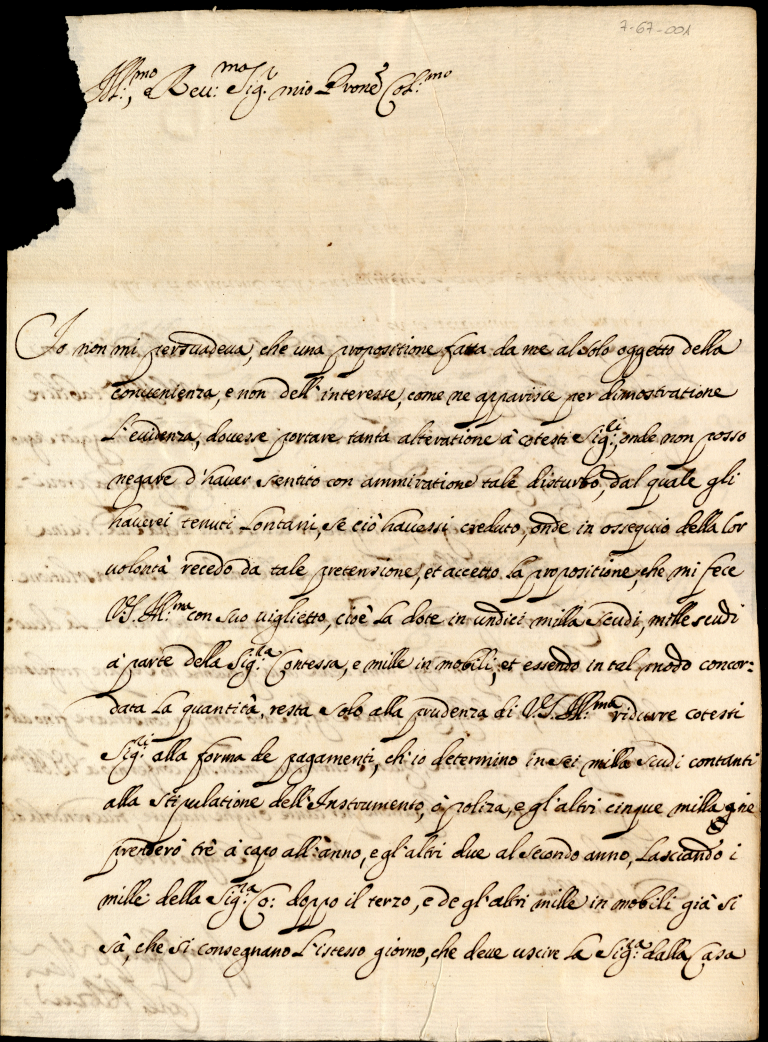 7-67-001
Ill:mo, e Reu:mo Sig.r mio P.rone Col:mo
Io non mi persuadeua, che una propositione fatta da me al solo oggetto della
conuenienza, e non dell'interesse, come ne apparisce per dimostratione
l'euidenza, douesse portare tanta alteratione à cotesti Sig:ri, onde non posso
negare d'hauer sentito con ammiratione tale disturbo, dal quale gli
hauerei tenuti lontani, se ciò hauessi creduto, onde in ossequio della lor
volontà recedo da tale pretensione, et accetto la propositione, che mi fece
V.S. Ill:ma con suo viglietto, cioè la dote in undici milla scudi, mille scudi
à parte della Sig:ra Contessa, e mille in mobili; et essendo in tal modo concor=
data la quantità, resta solo alla prudenza di V.S. Ill:ma ridurre cotesti
Sig:ri alla forma de pagamenti, ch'io determino in sei milla scudi contanti
alla stipulatione dell'Instrumento, ò poliza, e gl'altri cinque milla gne
prenderò trè à capo all'anno, e gl'altri due al secondo anno, lasciando i
mille della Sig:ra Co: doppo il terzo, e de gl'altri mille in mobili già si
sà, che si consegnano l'istesso giorno, che deue uscire la Sig:ra dalla Casa